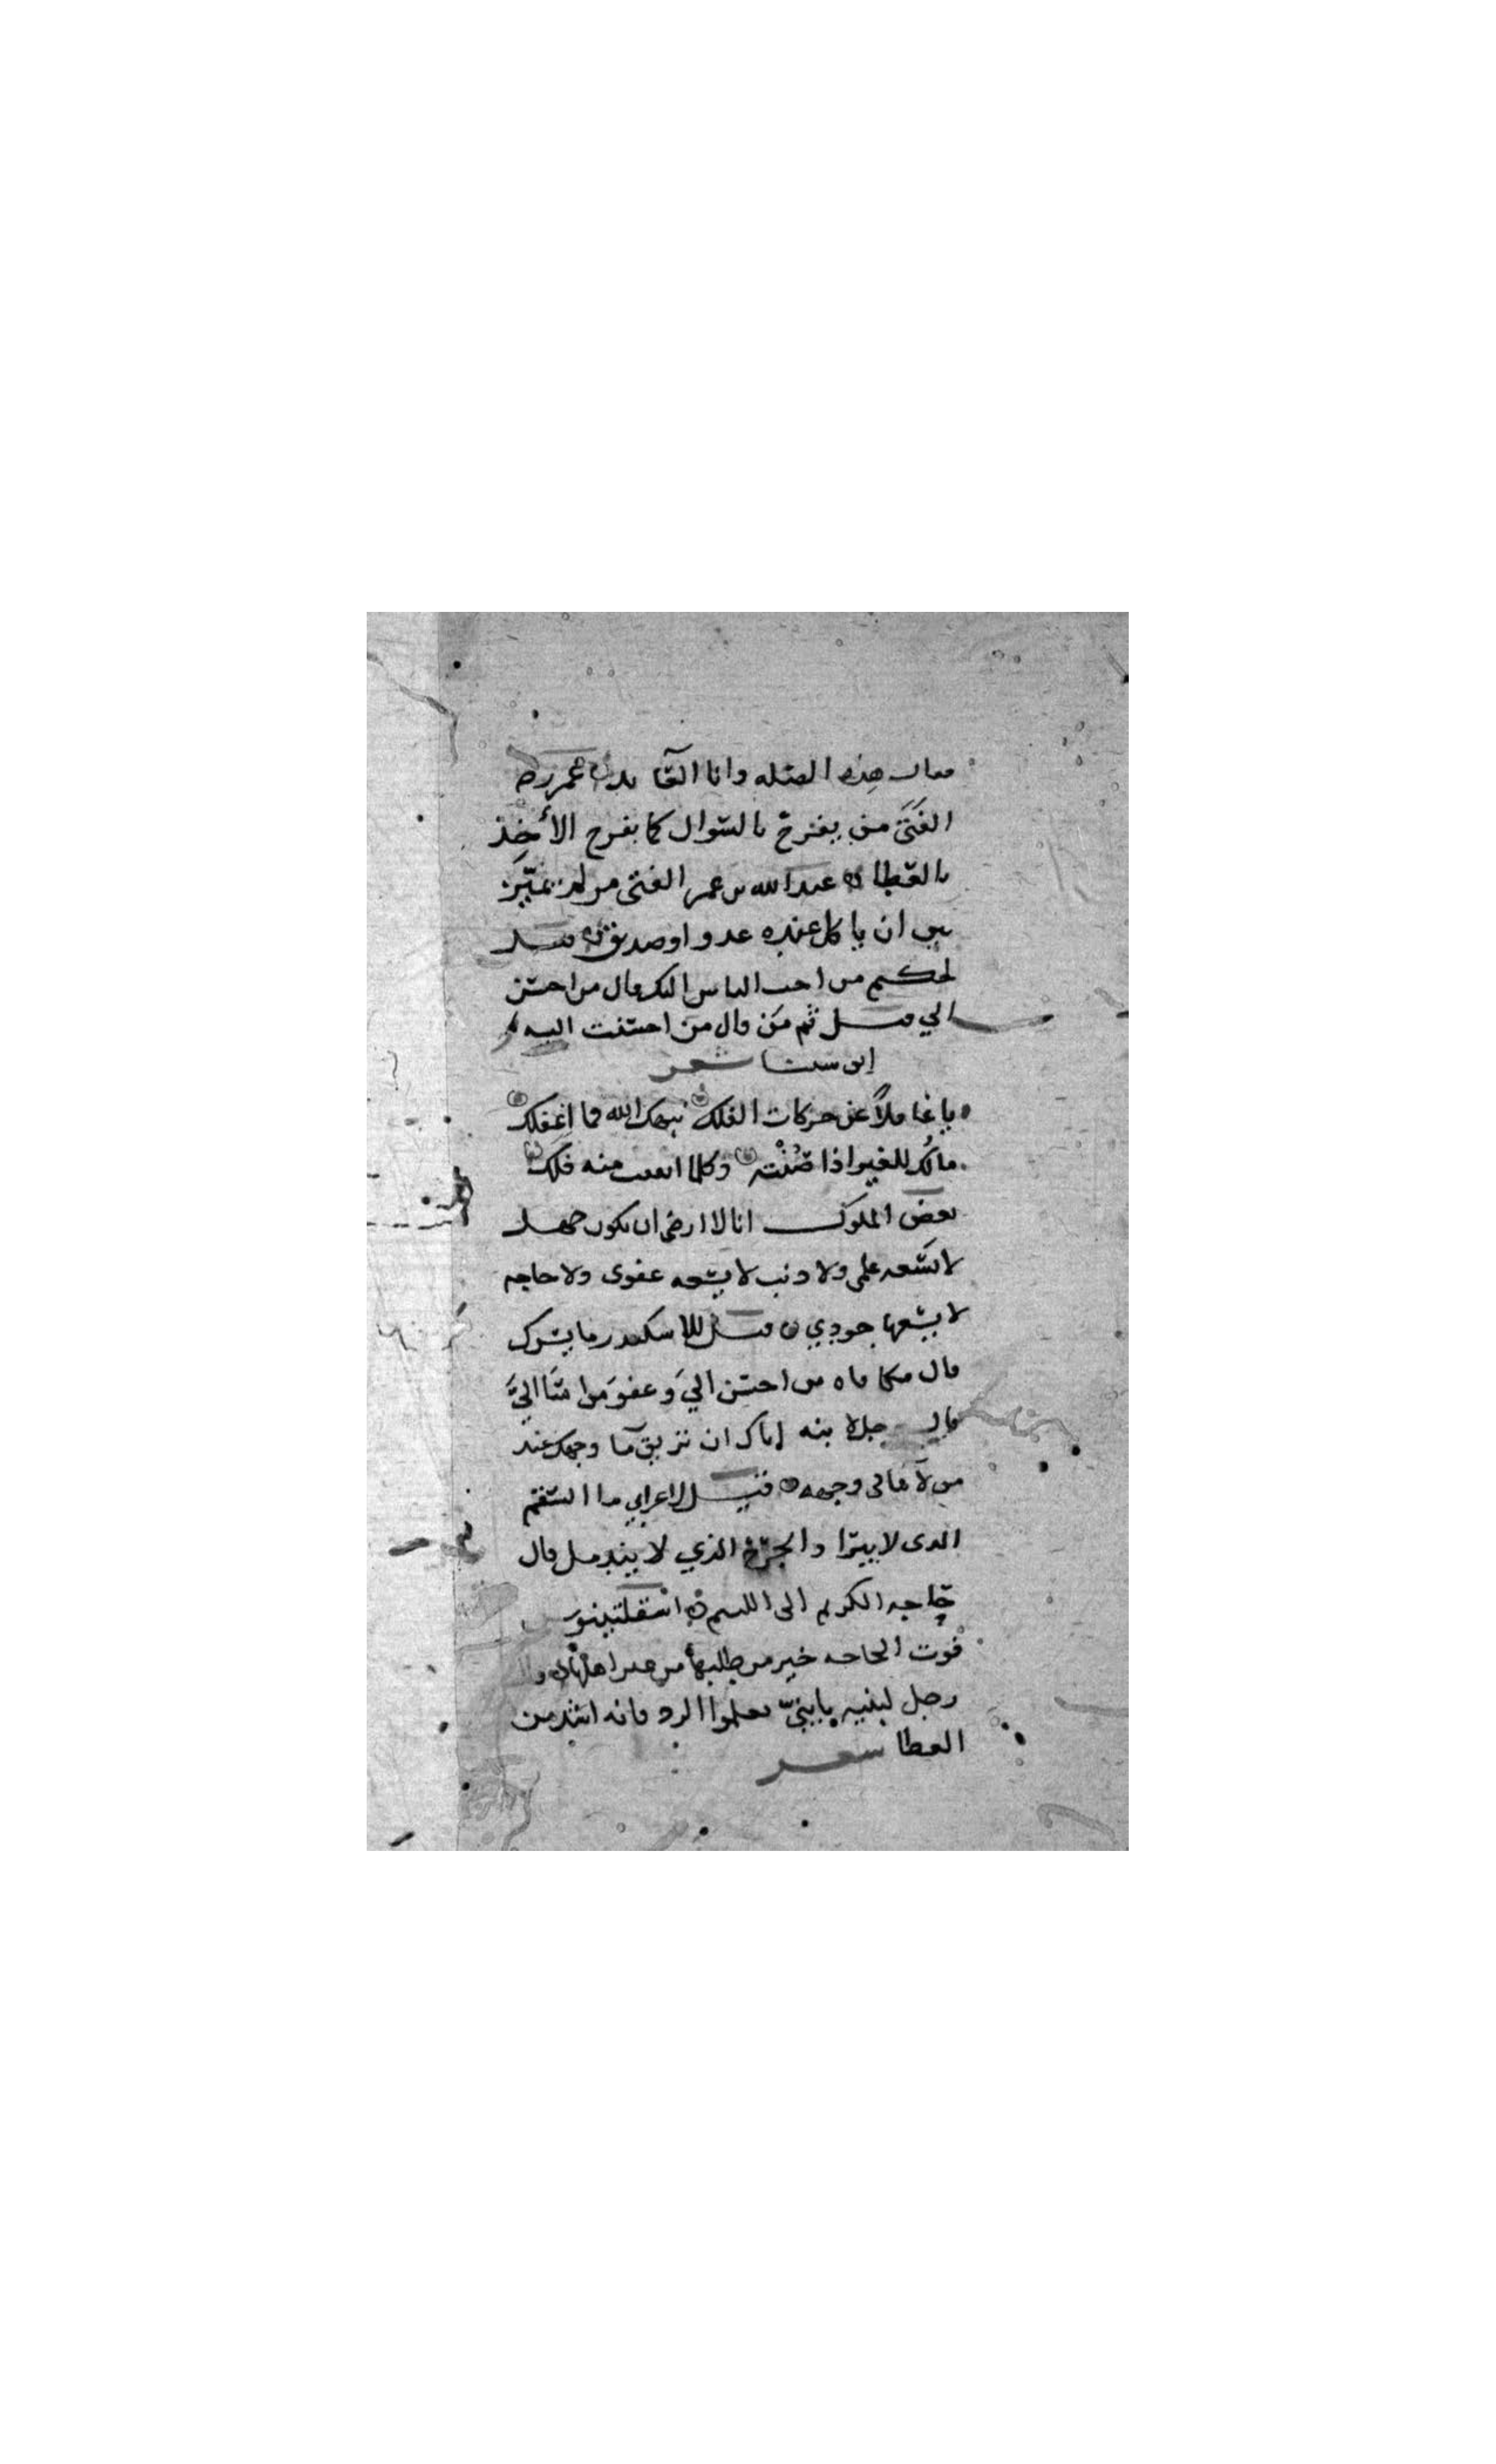 فقال هذه الصله وانا القايد عمر رضه
الفتى من يفرح بالسوال كما يفرح الأخذ
بالعطا عبد الله بن عمر الفتى من لم يميز
بين ان ياكل عنده عدو او صديق قيل
لحكيم من احب الناس اليك قال من احسن
الي قيل ثم من قال من احسنت اليه
ابن سينا شعر
يا غافلاً عن حركات الفلك نبهك الله فما اغفلك
مالك للغير اذا صنته وكلما انفقت منه فلك
بعض الملوك انا لا ارضى ان يكون جهل
لا يسعه علمي ولا ذنب لا يسعه عفوي ولا حاجه
لا يسعها جودي قيل للاسكندر ما يسرك
قال مكافاه من احسن الي وعفو من اسا الي
قال رجل لابنه اياك ان تريق ما وجهك عند
من لا ما في وجهه قيل لاعرابي ما السقم
الذي لا يبرا والجرح الذي لا يندمل قال
حاجه الكريم الى اللئيم اسقلبينوس
فوت الحاجه خير من طلبها من غير اهلها وقال
رجل لبنيه يا بني تعلموا الرد فانه اشد من
العطا شعر